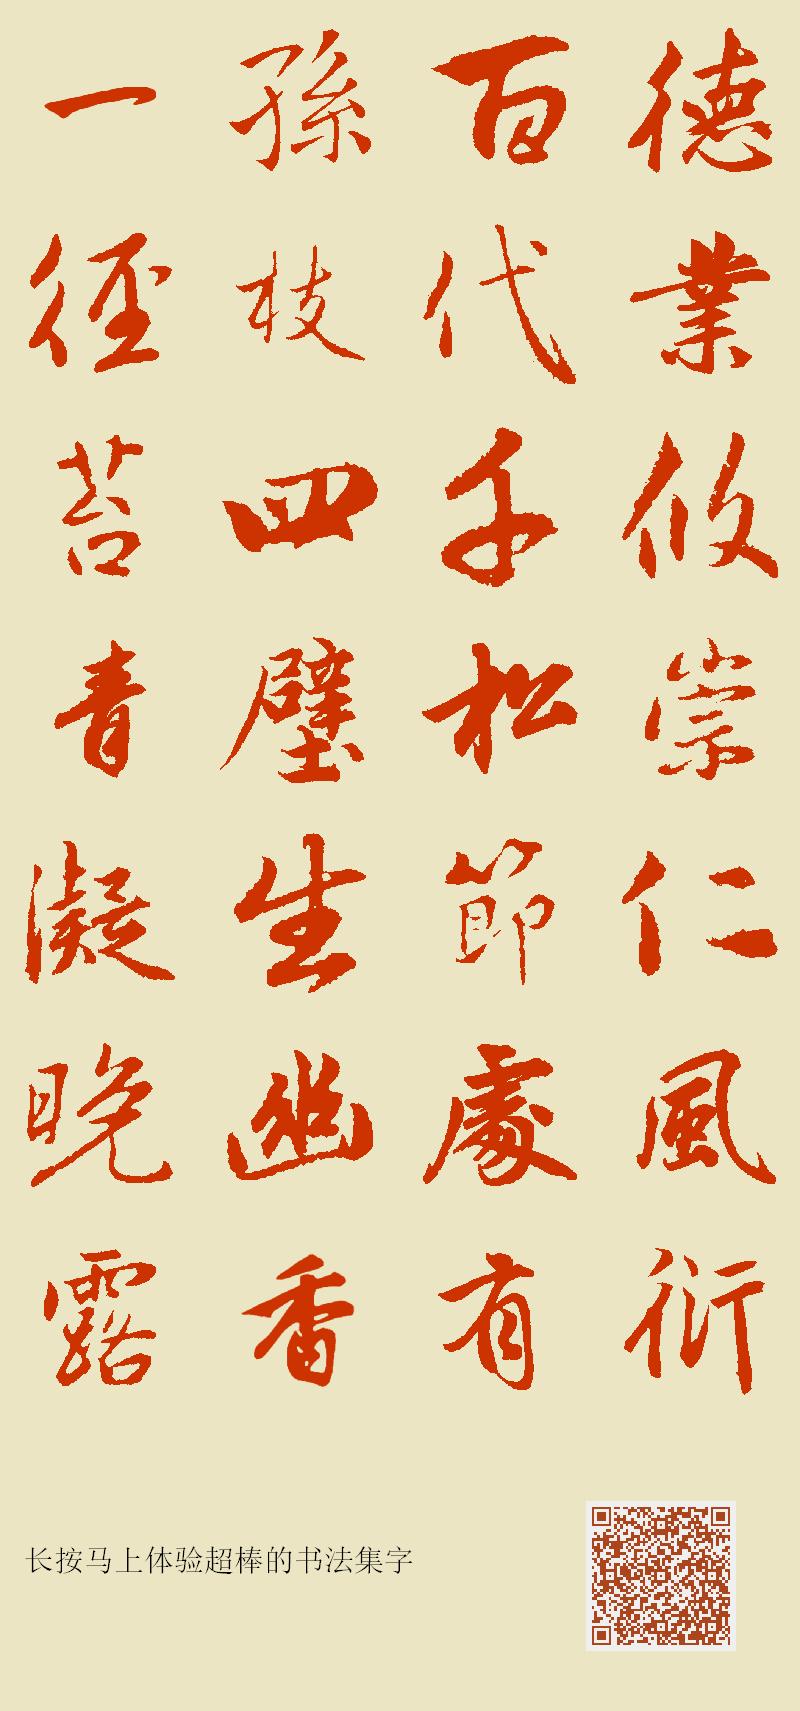 德業攸崇仁風衍
百代千松節處有
孫枝四壁生幽香
一徑苔青凝晚露
长按马上体验超棒的书法集字